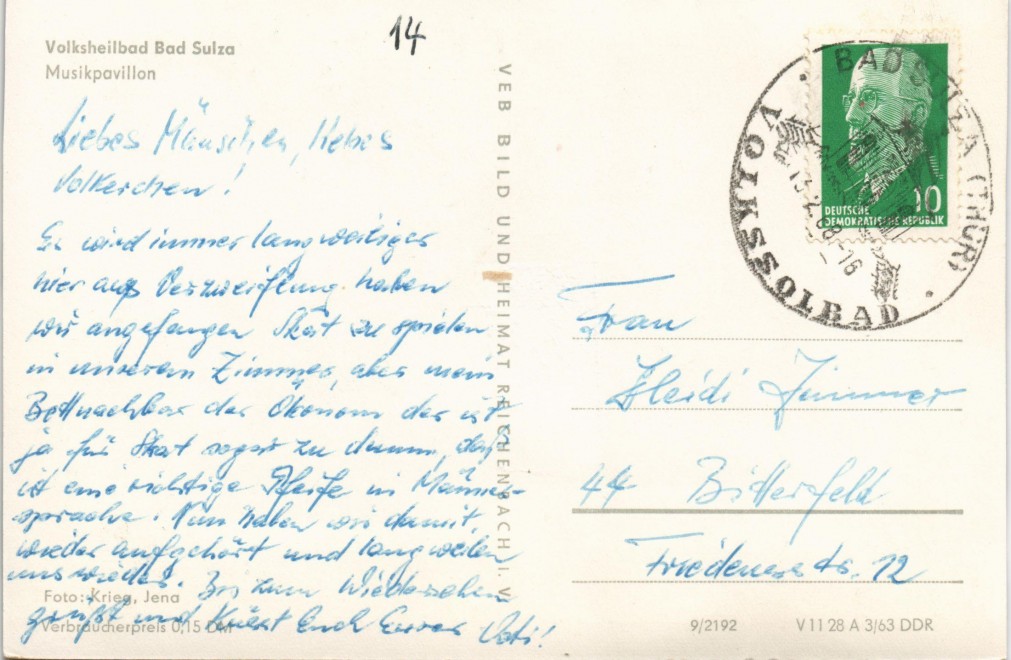 14
Volksheilbad Bad Sulza
Musikpavillon
Liebes Mäuschen, liebes
Volkerchen!
Es wird immer langweiliger
hier aus Verzweiflung haben
wir angefangen Skat zu spielen
in unserem Zimmer, aber mein
Bettnachbar der Ökonom der ist
ja für Skat sogar zu dumm, das
ist eine richtige Pfeife in Männer-
sprache. Nun haben wir damit
wieder aufgehört und langweilen
uns wieder. Bis zum Wiedersehen
grüßt und küsst Euch Euer Vati!
Foto: Krieg, Jena
Verbraucherpreis 0,15 DM
VEB BILD UND HEIMAT REICHENBACH I. V.
BAD SULZA (THÜR)
VOLKSSOLBAD
-16
10
DEUTSCHE
DEMOKRATISCHE REPUBLIK
Frau
Heidi Zimmer
44 Bitterfeld
Friedensstr. 12
9/2192 V 11 28 A 3/63 DDR